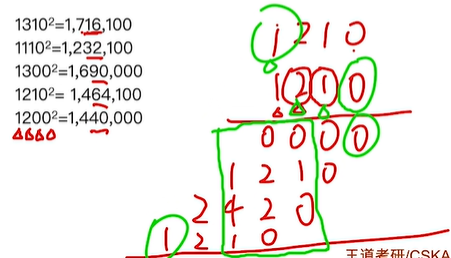 1310²=1,716,100
1110²=1,232,100
1300²=1,690,000
1210²= 1,464,100
1200²=1,440,000
1 2 1 0
1 2 1 0
0 0 0 0
1 2 1 0
2 4 2 0
1 2 1 0
王道考研/CSKA